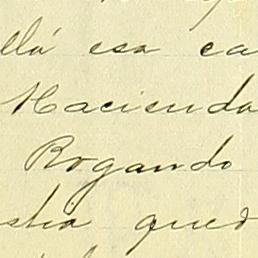 llá esa ca
Hacienda
Rogando
stra qued